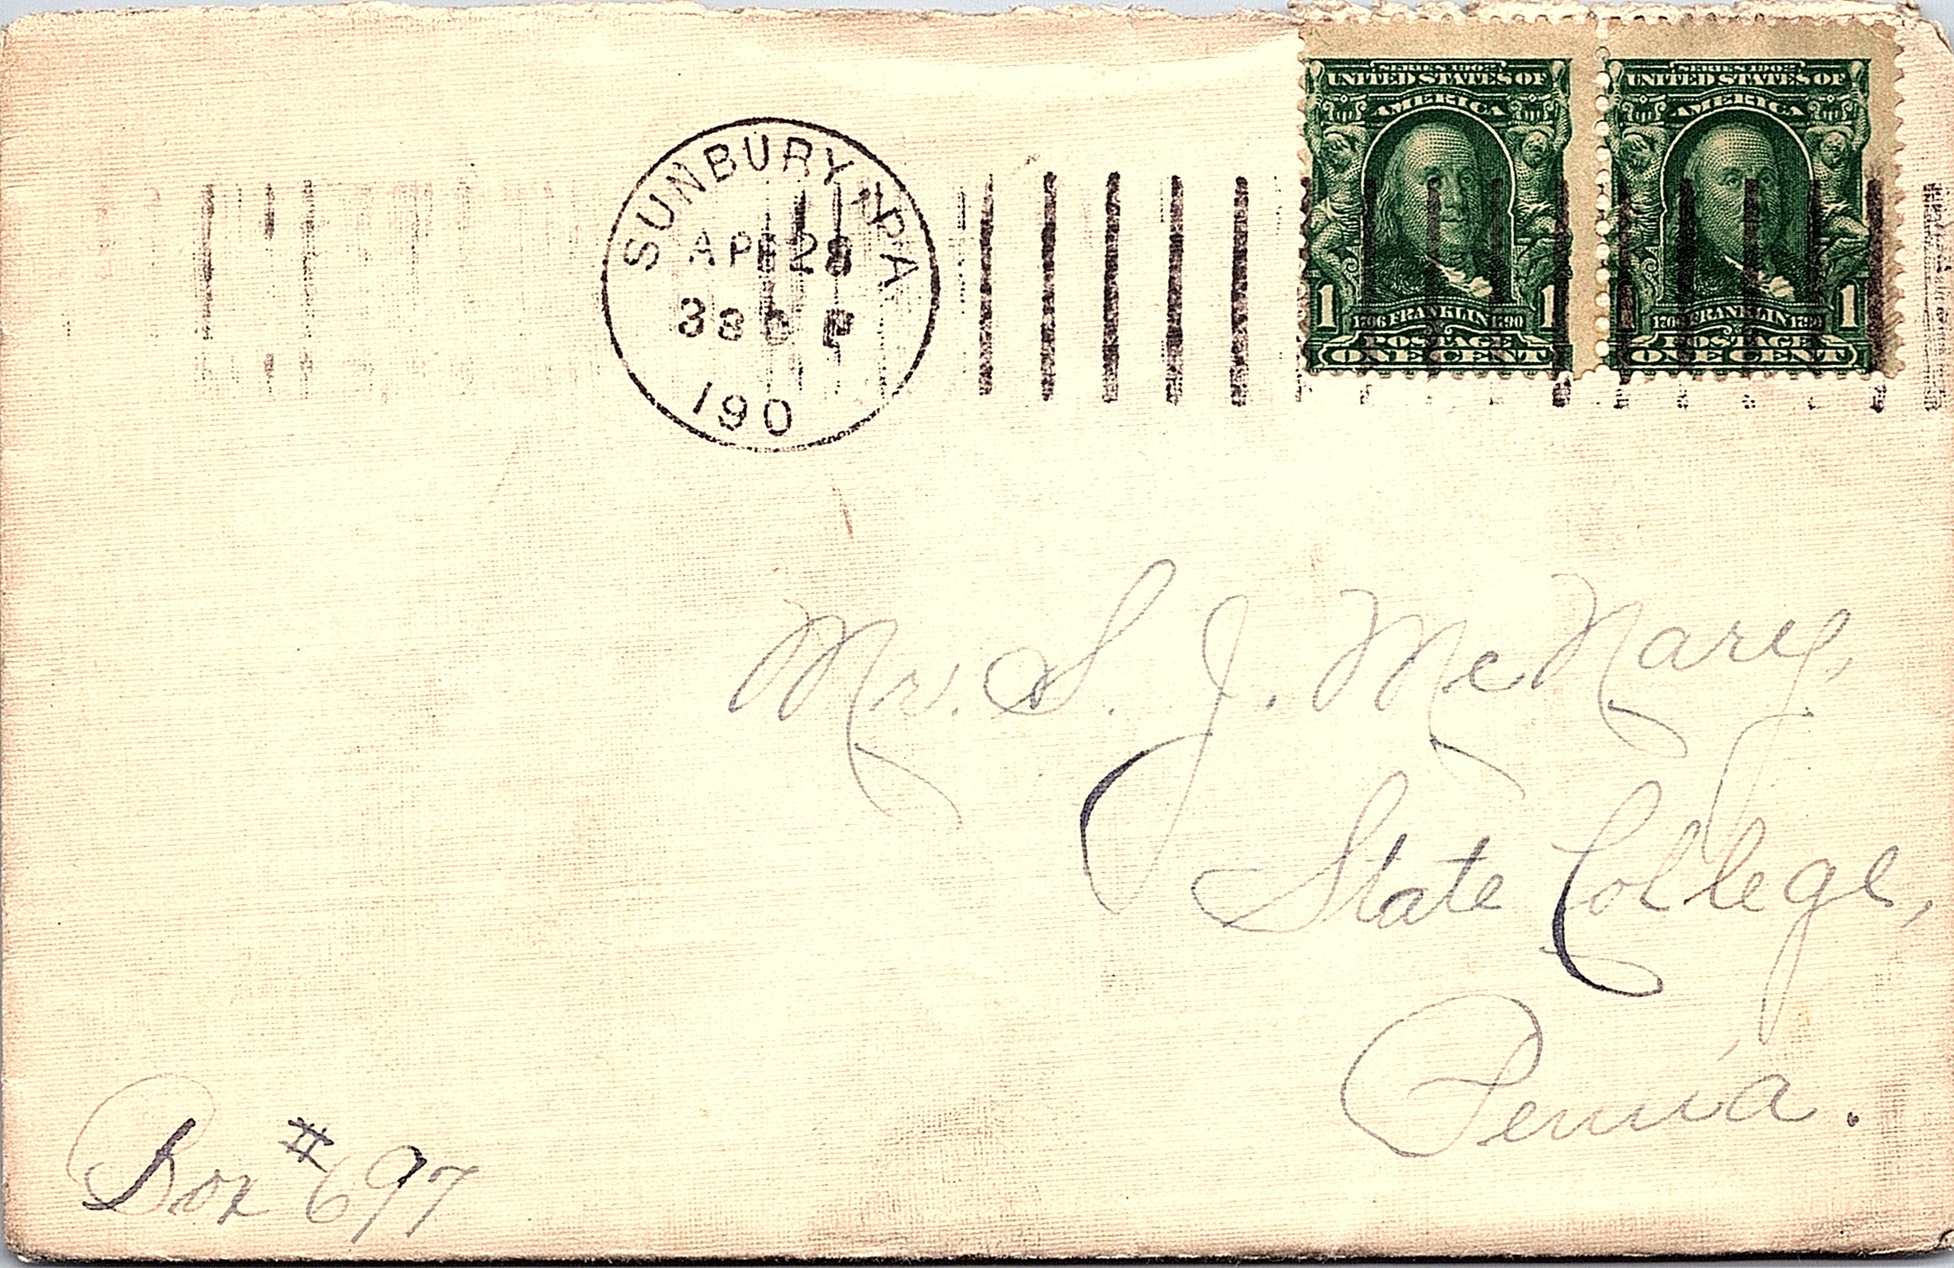 SERIES 1902 SERIES 1902
UNITED STATES OF UNITED STATES OF
AMERICA AMERICA
1 1 1 1
1706 FRANKLIN 1790 1706 FRANKLIN 1790
POSTAGE POSTAGE
ONE CENT ONE CENT
SUNBURY, PA
APR 28
190
Mr. S. J. McNary,
State College,
Penn'a.
Box #697